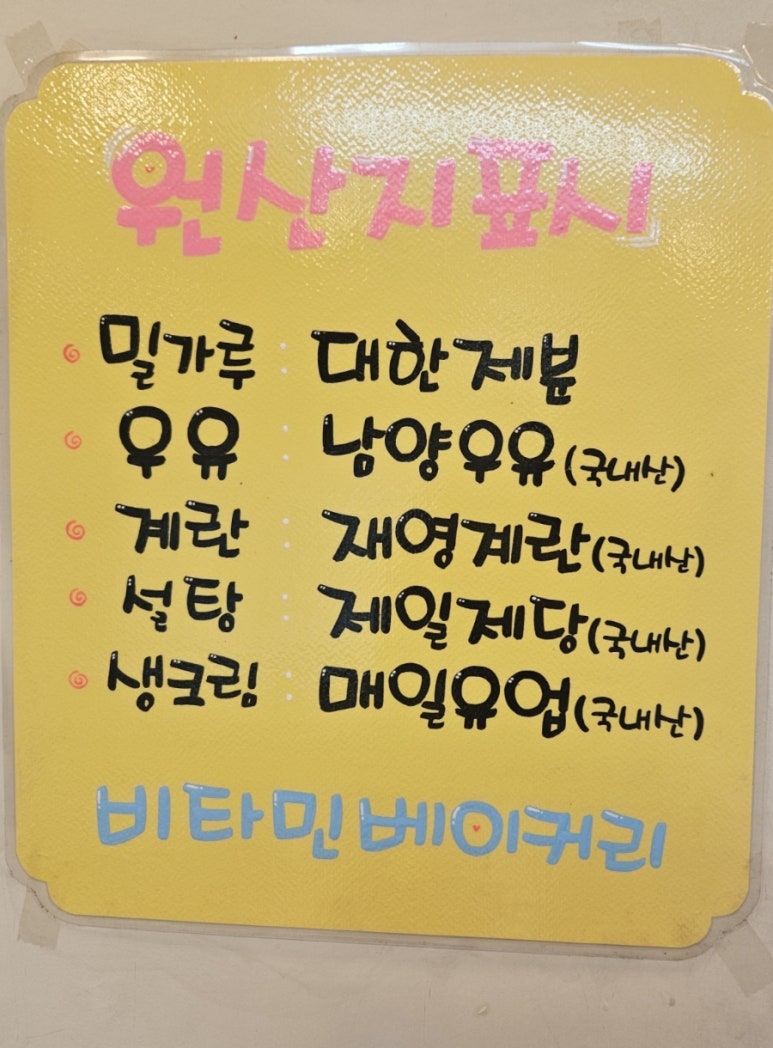 원산지표시
밀가루 : 대한제분
우유 : 남양우유(국내산)
계란 : 재영계란(국내산)
설탕 : 제일제당(국내산)
생크림 : 매일유업(국내산)
비타민베이커리